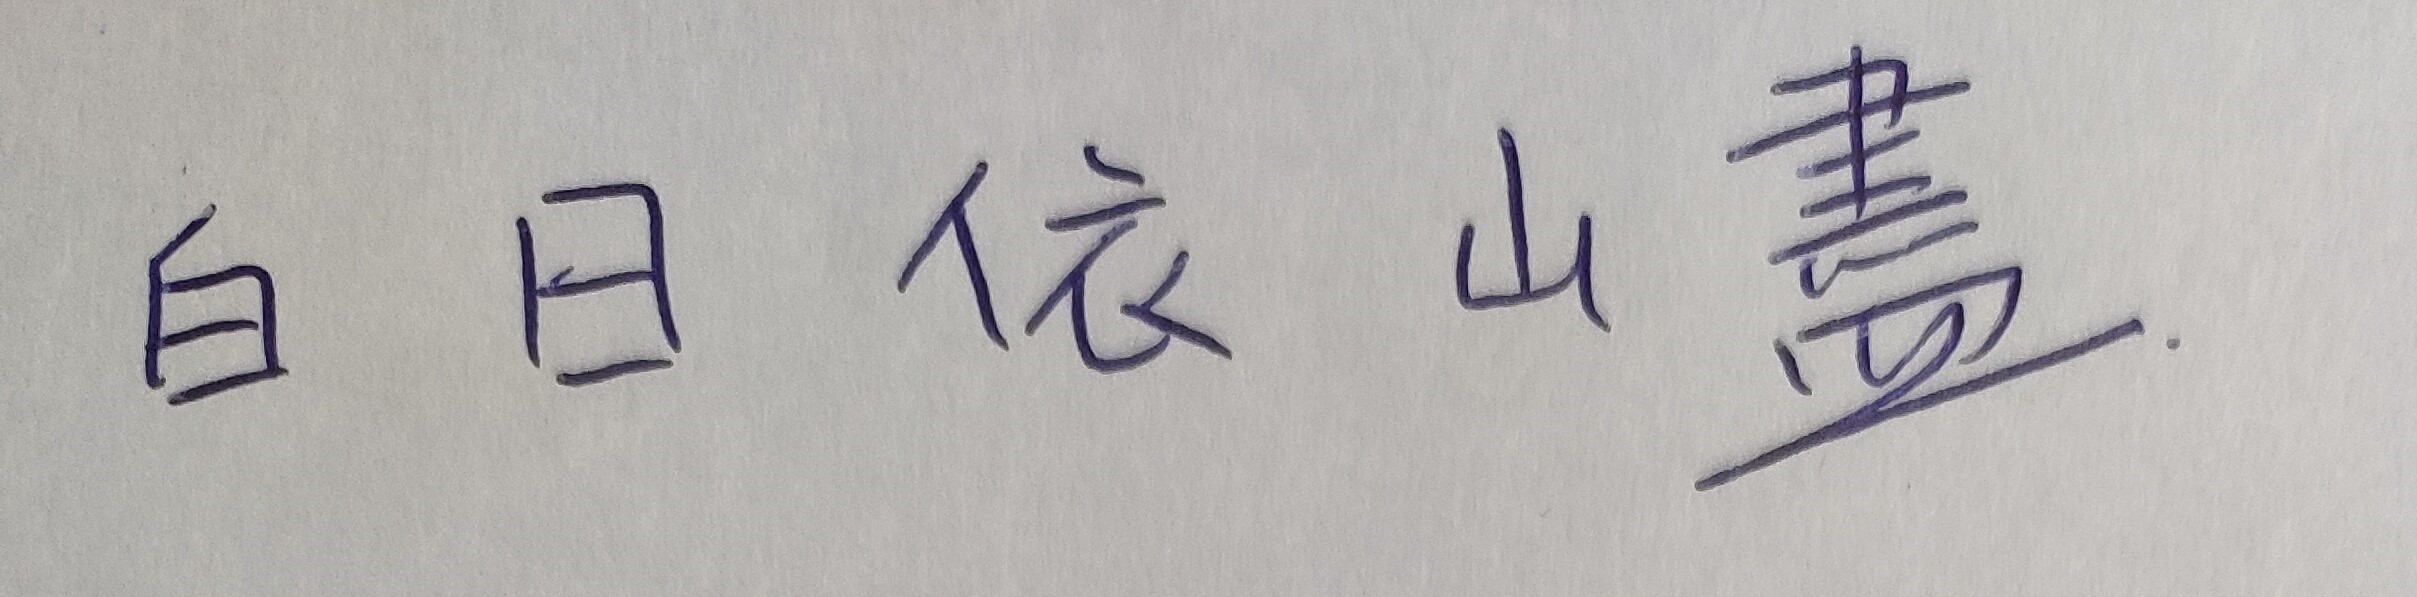 白日依山盡.